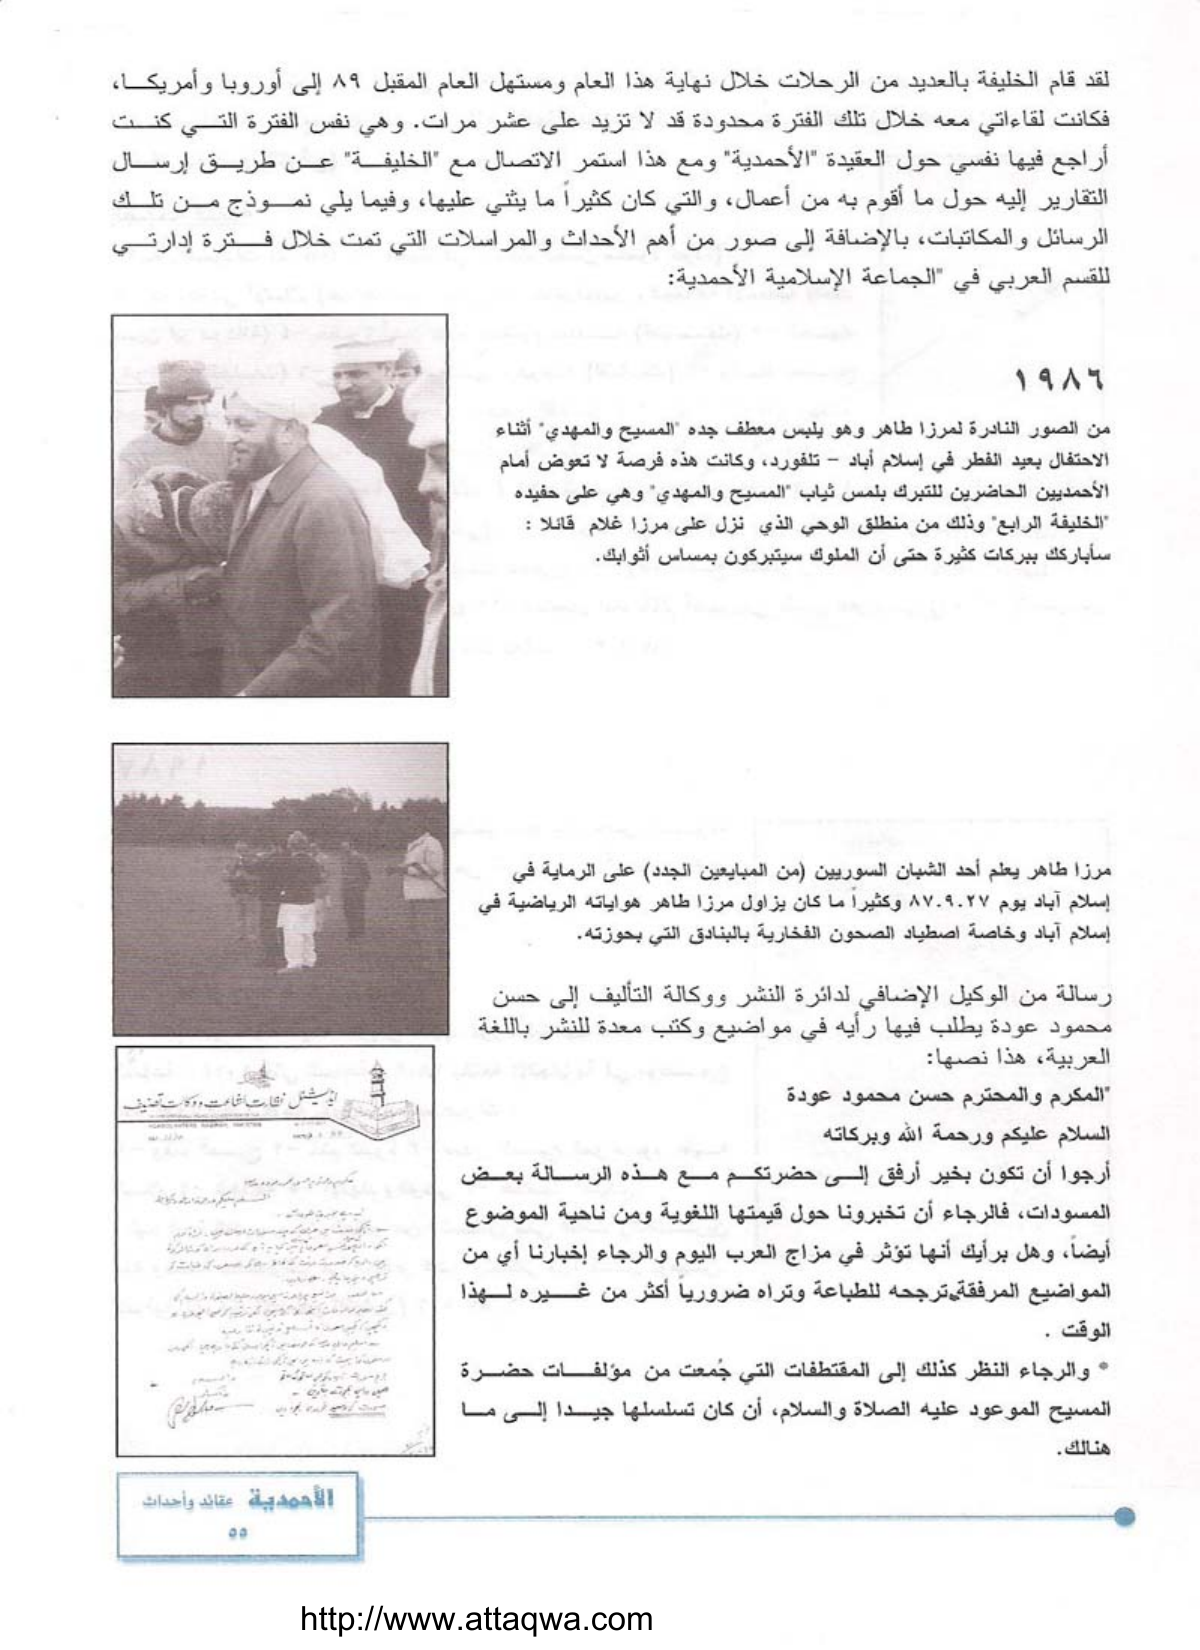 لقد قام الخليفة بالعديد من الرحلات خلال نهاية هذا العام ومستهل العام المقبل ٨٩ إلى أوروبا وأمريكا،
فكانت لقاءاتي معه خلال تلك الفترة محدودة قد لا تزيد على عشر مرات. وهي نفس الفترة التي كنت
أراجع فيها نفسي حول العقيدة "الأحمدية" ومع هذا استمر الاتصال مع "الخليفة" عن طريق إرسال
التقارير إليه حول ما أقوم به من أعمال، والتي كان كثيراً ما يثني عليها، وفيما يلي نموذج من تلك
الرسائل والمكاتبات، بالإضافة إلى صور من أهم الأحداث والمراسلات التي تمت خلال فترة إدارتي
للقسم العربي في "الجماعة الإسلامية الأحمدية:
١٩٨٦
من الصور النادرة لمرزا طاهر وهو يلبس معطف جده "المسيح والمهدي" أثناء
الاحتفال بعيد الفطر في إسلام أباد – تلفورد، وكانت هذه فرصة لا تعوض أمام
الأحمديين الحاضرين للتبرك بلمس ثياب "المسيح والمهدي" وهي على حفيده
"الخليفة الرابع" وذلك من منطلق الوحي الذي نزل على مرزا غلام قائلا :
سأباركك ببركات كثيرة حتى أن الملوك سيتبركون بمساس أثوابك.
مرزا طاهر يعلم أحد الشبان السوريين (من المبايعين الجدد) على الرماية في
إسلام آباد يوم ٨٧.٩.٢٧ وكثيراً ما كان يزاول مرزا طاهر هواياته الرياضية في
إسلام آباد وخاصة اصطياد الصحون الفخارية بالبنادق التي بحوزته.
رسالة من الوكيل الإضافي لدائرة النشر ووكالة التأليف إلى حسن
محمود عودة يطلب فيها رأيه في مواضيع وكتب معدة للنشر باللغة
العربية، هذا نصها:
"المكرم والمحترم حسن محمود عودة
السلام عليكم ورحمة الله وبركاته
أرجوا أن تكون بخير أرفق إلى حضرتكم مع هذه الرسالة بعض
المسودات، فالرجاء أن تخبرونا حول قيمتها اللغوية ومن ناحية الموضوع
أيضاً، وهل برأيك أنها تؤثر في مزاج العرب اليوم والرجاء إخبارنا أي من
المواضيع المرفقة ترجحه للطباعة وتراه ضرورياً أكثر من غيره لهذا
الوقت .
* والرجاء النظر كذلك إلى المقتطفات التي جُمعت من مؤلفات حضرة
المسيح الموعود عليه الصلاة والسلام، أن كان تسلسلها جيدا إلى ما
هنالك.
ایڈیشنل نظارت اشاعت و وکالت تصنیف
الأحمدية عقائد وأحداث
٥٥
http://www.attaqwa.com